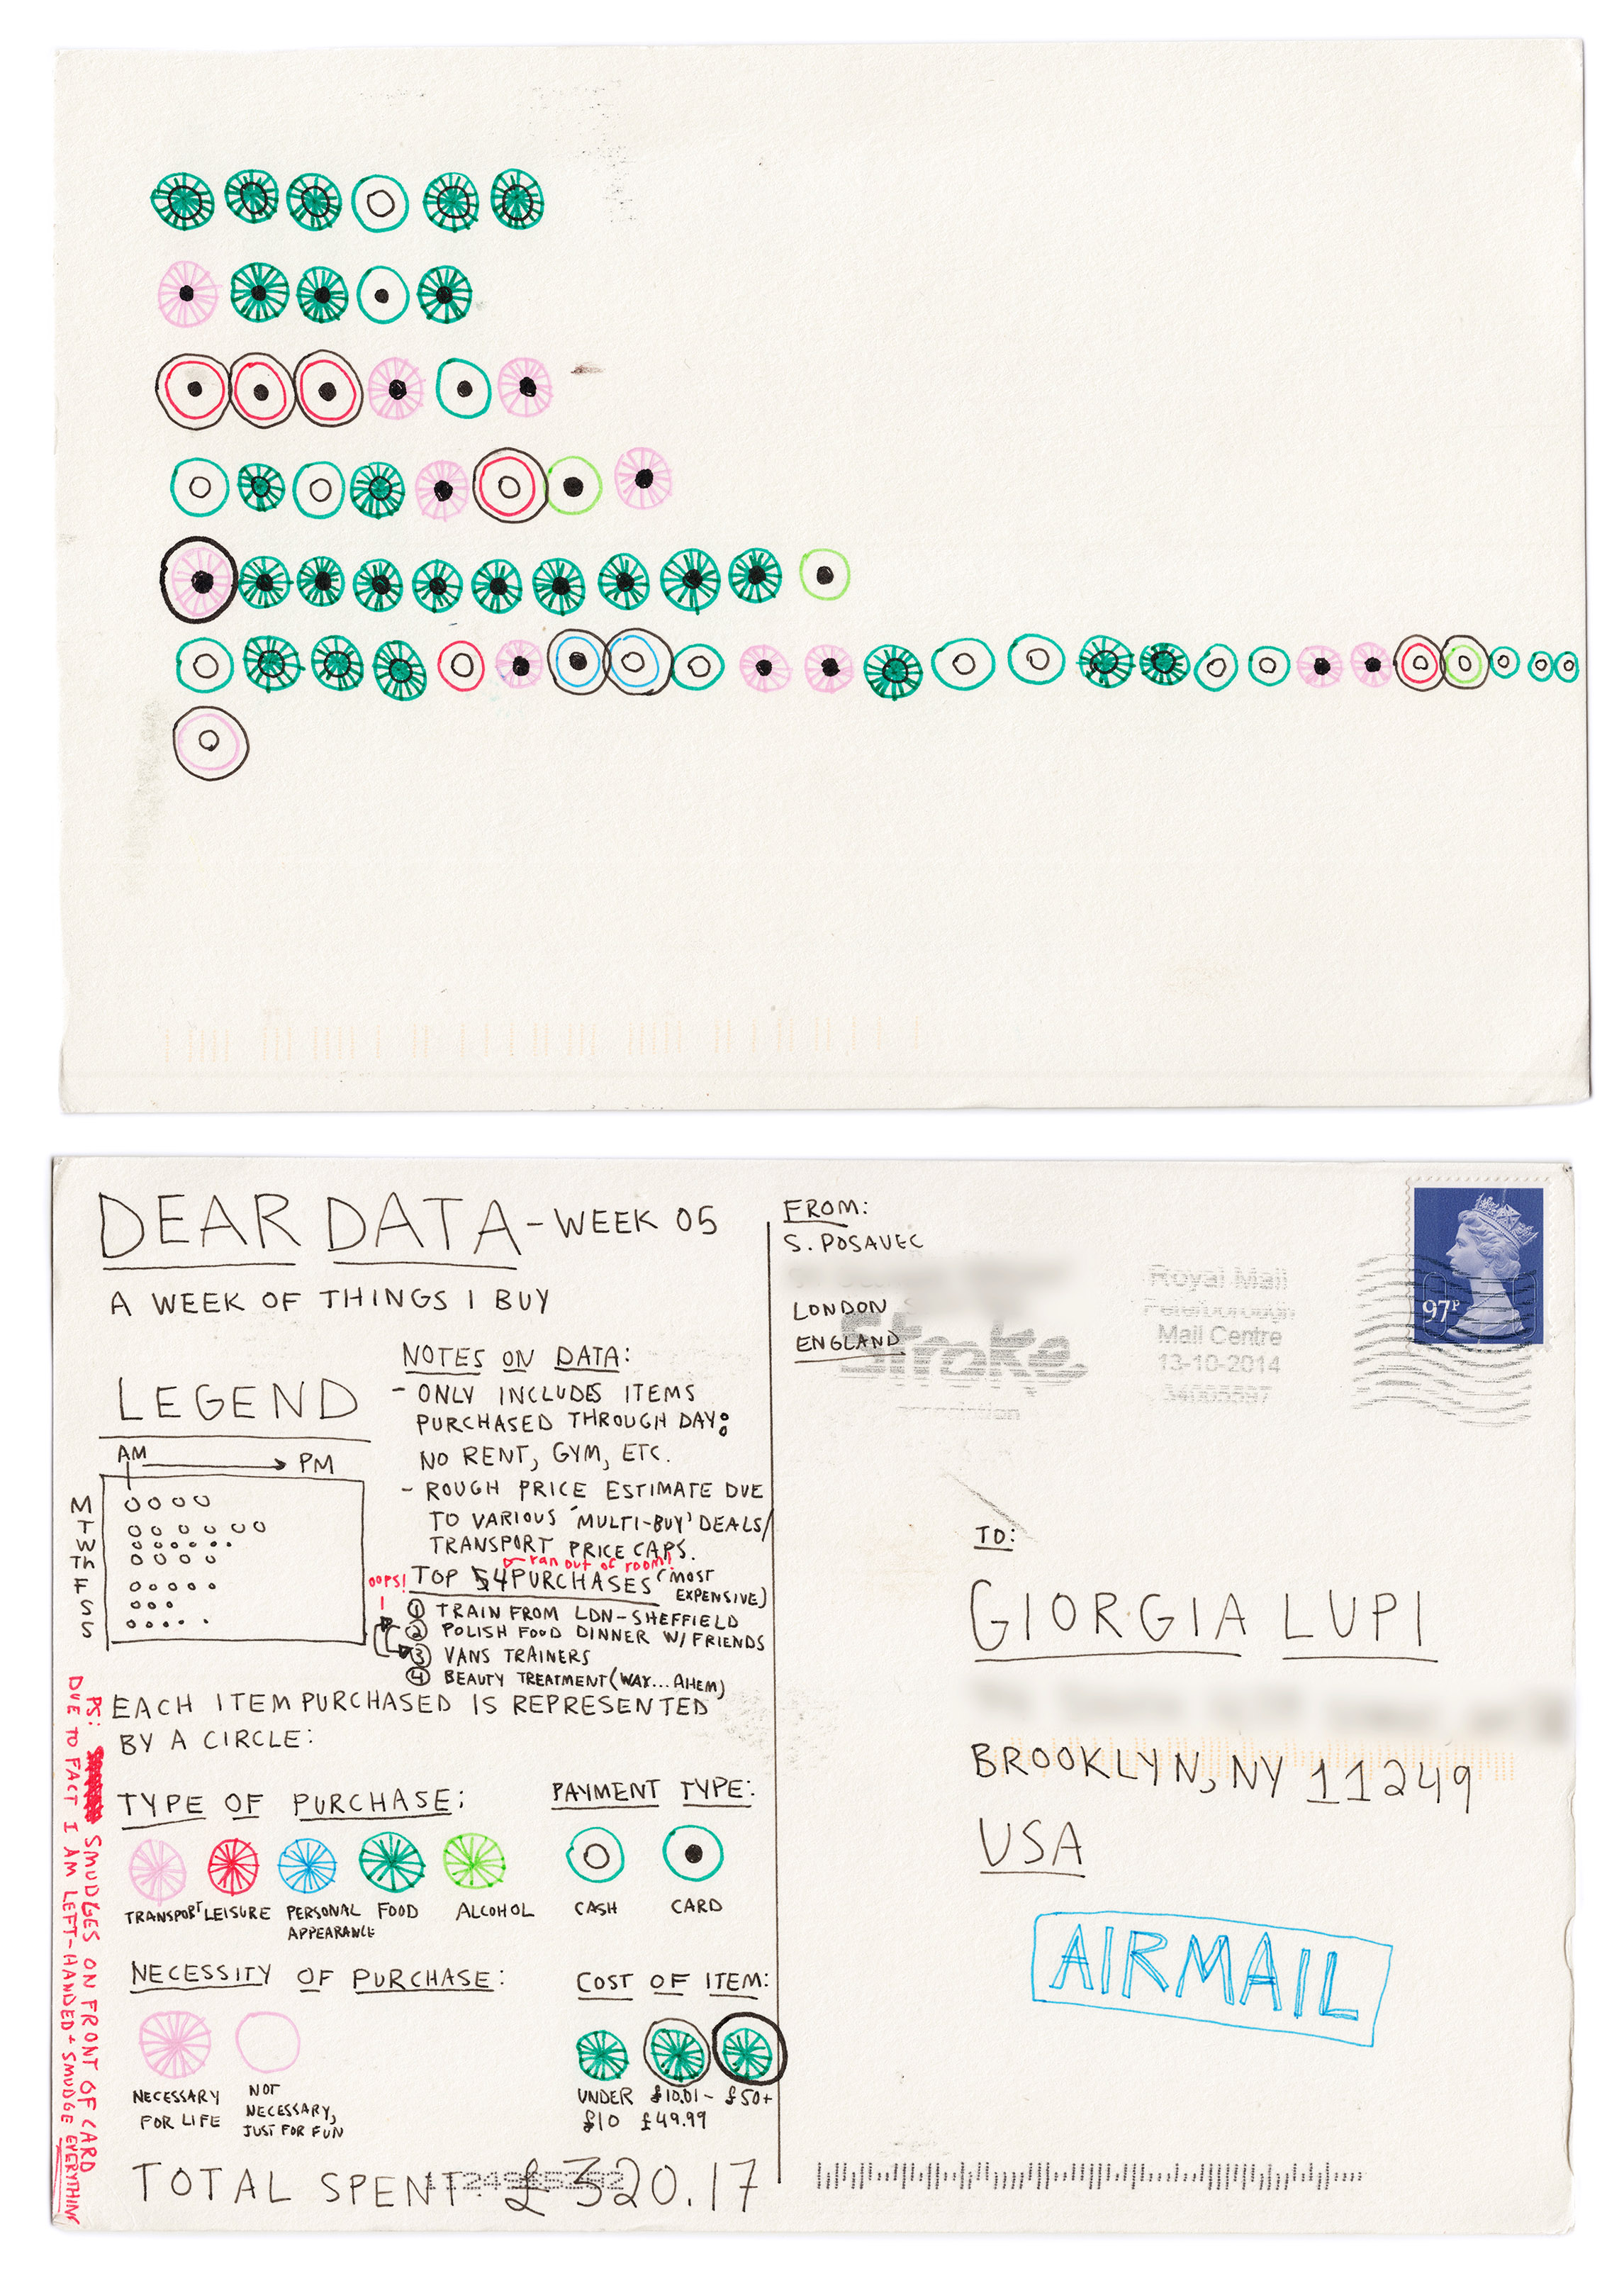 DEAR DATA - WEEK 05
A WEEK OF THINGS I BUY
NOTES ON DATA:
- ONLY INCLUDES ITEMS
PURCHASED THROUGH DAY:
NO RENT, GYM, ETC.
- ROUGH PRICE ESTIMATE DUE
TO VARIOUS 'MULTI-BUY' DEALS/
TRANSPORT PRICE CAPS.
ran out of room!
OOPS!
TOP 4 PURCHASES (MOST
EXPENSIVE)
① TRAIN FROM LDN-SHEFFIELD
② POLISH FOOD DINNER W/ FRIENDS
③ VANS TRAINERS
④ BEAUTY TREATMENT (WAX... AHEM)
LEGEND
AM → PM
M
T
W
Th
F
S
S
EACH ITEM PURCHASED IS REPRESENTED
BY A CIRCLE:
TYPE OF PURCHASE:
TRANSPORT LEISURE PERSONAL FOOD ALCOHOL
APPEARANCE
PAYMENT TYPE:
CASH CARD
NECESSITY OF PURCHASE:
NECESSARY
FOR LIFE
NOT
NECESSARY,
JUST FOR FUN
COST OF ITEM:
UNDER
£10
£10.01-
£49.99
£50+
TOTAL SPENT: £320.17
PS: SMUDGES ON FRONT OF CARD
DUE TO FACT I AM LEFT-HANDED + SMUDGE EVERYTHING
FROM:
S. POSAVEC
LONDON
ENGLAND
Stroke
Royal Mail
Peterborough
Mail Centre
13-10-2014
97P
TO:
GIORGIA LUPI
BROOKLYN, NY 11249
USA
AIRMAIL